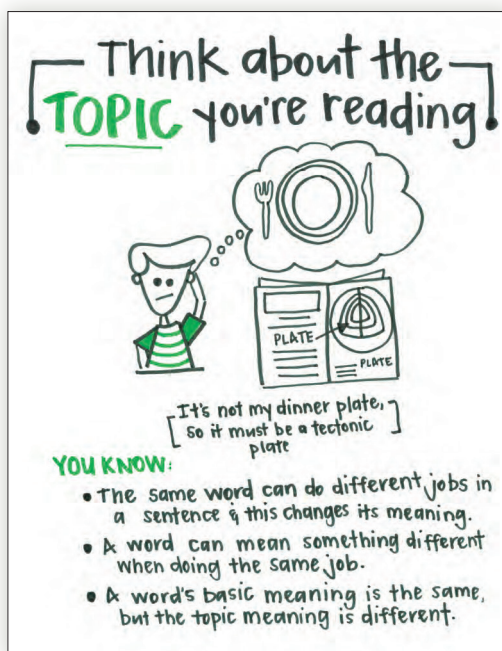 Think about the
TOPIC you're reading
PLATE
PLATE
It's not my dinner plate,
so it must be a tectonic
plate
YOU KNOW:
• The same word can do different jobs in
a sentence & this changes its meaning.
• A word can mean something different
when doing the same job.
• A word's basic meaning is the same,
but the topic meaning is different.